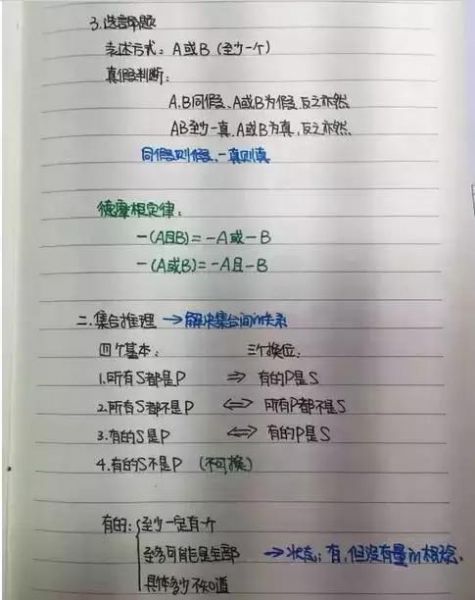 3.选言命题
表述方式：A或B（至少一个）
真假判断：
A.B同假、A或B为假,反之亦然
AB至少一真,A或B为真,反之亦然.
同假则假,一真则真
德摩根定律：
－(A且B)＝－A或－B
－(A或B)＝－A且－B
二.集合推理 →解决集合间的关系
四个基本： 三个换位：
1.所有S都是P ⇒ 有的P是S
2.所有S都不是P ⇔ 所有P都不是S
3.有的S是P ⇔ 有的P是S
4.有的S不是P （不可换）
有的：{至少一定有一个
至多可能是全部 →状态：有,但没有量的概念.
具体多少不知道